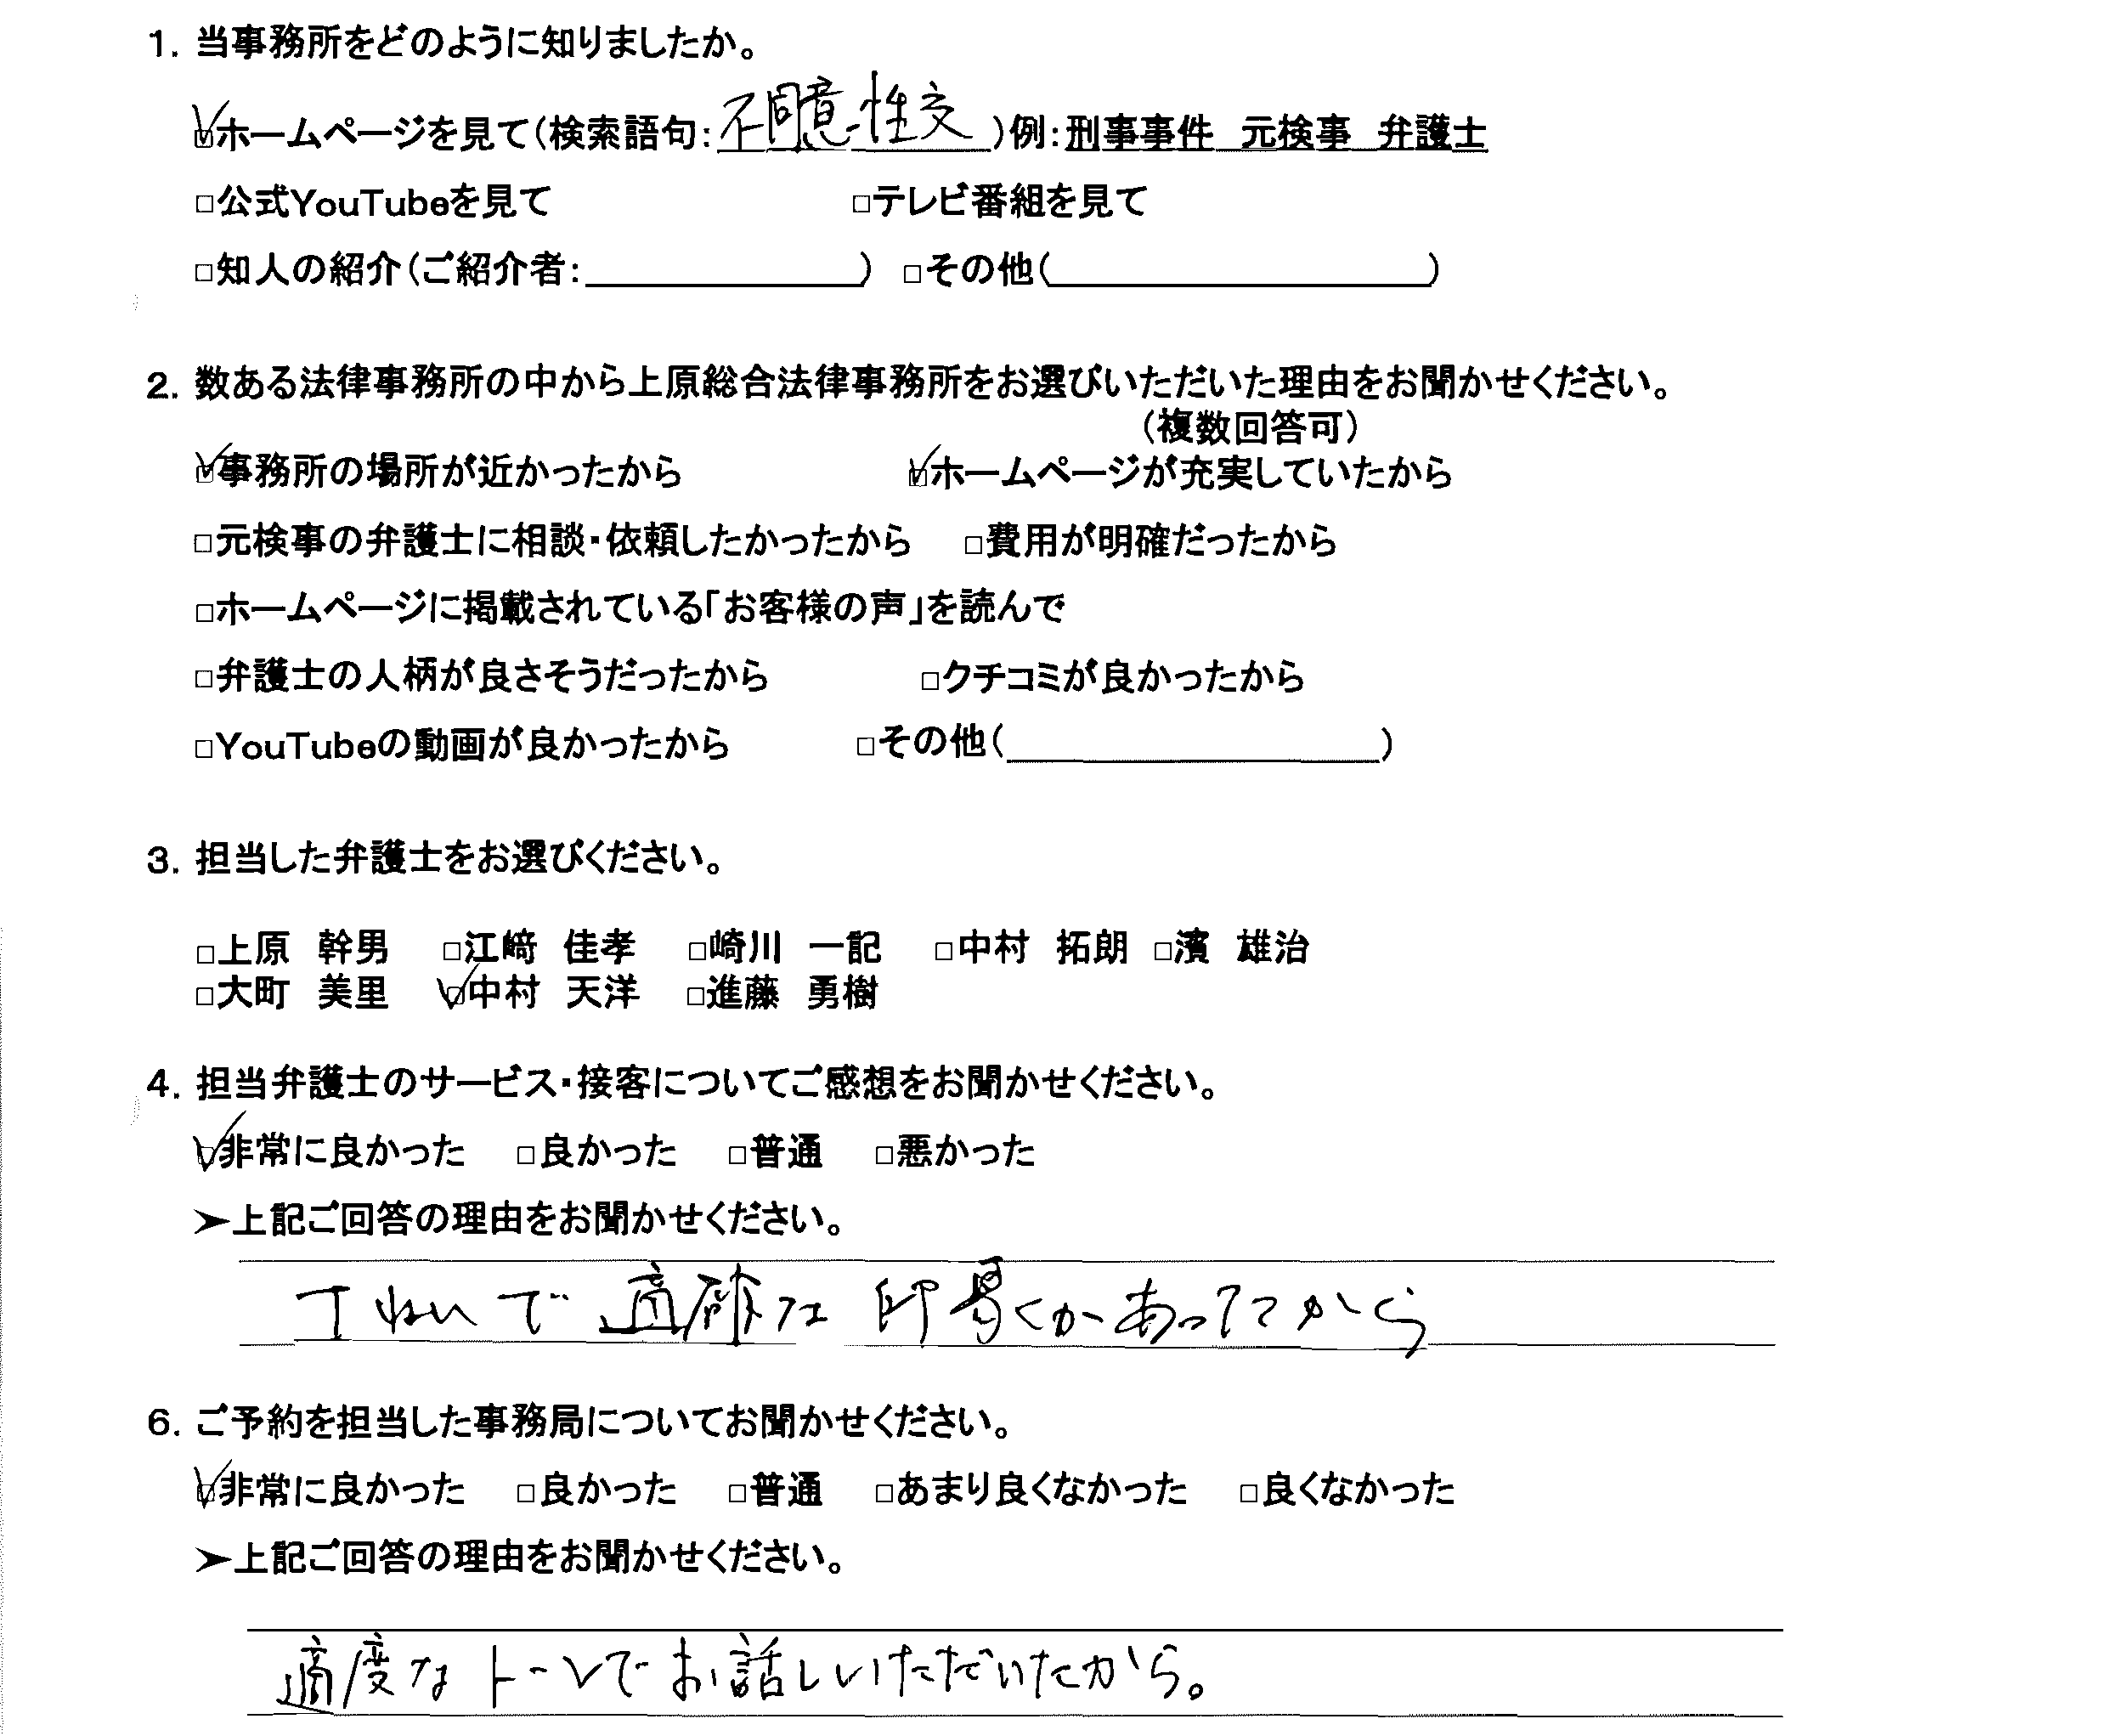 1. 当事務所をどのように知りましたか。
☑ホームページを見て(検索語句:不同意性交)例:刑事事件 元検事 弁護士
□公式YouTubeを見て □テレビ番組を見て
□知人の紹介(ご紹介者: ) □その他( )
2. 数ある法律事務所の中から上原総合法律事務所をお選びいただいた理由をお聞かせください。
(複数回答可)
☑事務所の場所が近かったから ☑ホームページが充実していたから
□元検事の弁護士に相談・依頼したかったから □費用が明確だったから
□ホームページに掲載されている「お客様の声」を読んで
□弁護士の人柄が良さそうだったから □クチコミが良かったから
□YouTubeの動画が良かったから □その他( )
3. 担当した弁護士をお選びください。
□上原 幹男 □江﨑 佳孝 □崎川 一記 □中村 拓朗 □濱 雄治
□大町 美里 ☑中村 天洋 □進藤 勇樹
4. 担当弁護士のサービス・接客についてご感想をお聞かせください。
☑非常に良かった □良かった □普通 □悪かった
➢上記ご回答の理由をお聞かせください。
で適 な 印 があったから
6. ご予約を担当した事務局についてお聞かせください。
☑非常に良かった □良かった □普通 □あまり良くなかった □良くなかった
➢上記ご回答の理由をお聞かせください。
適度なトーンでお話しいただいたから。